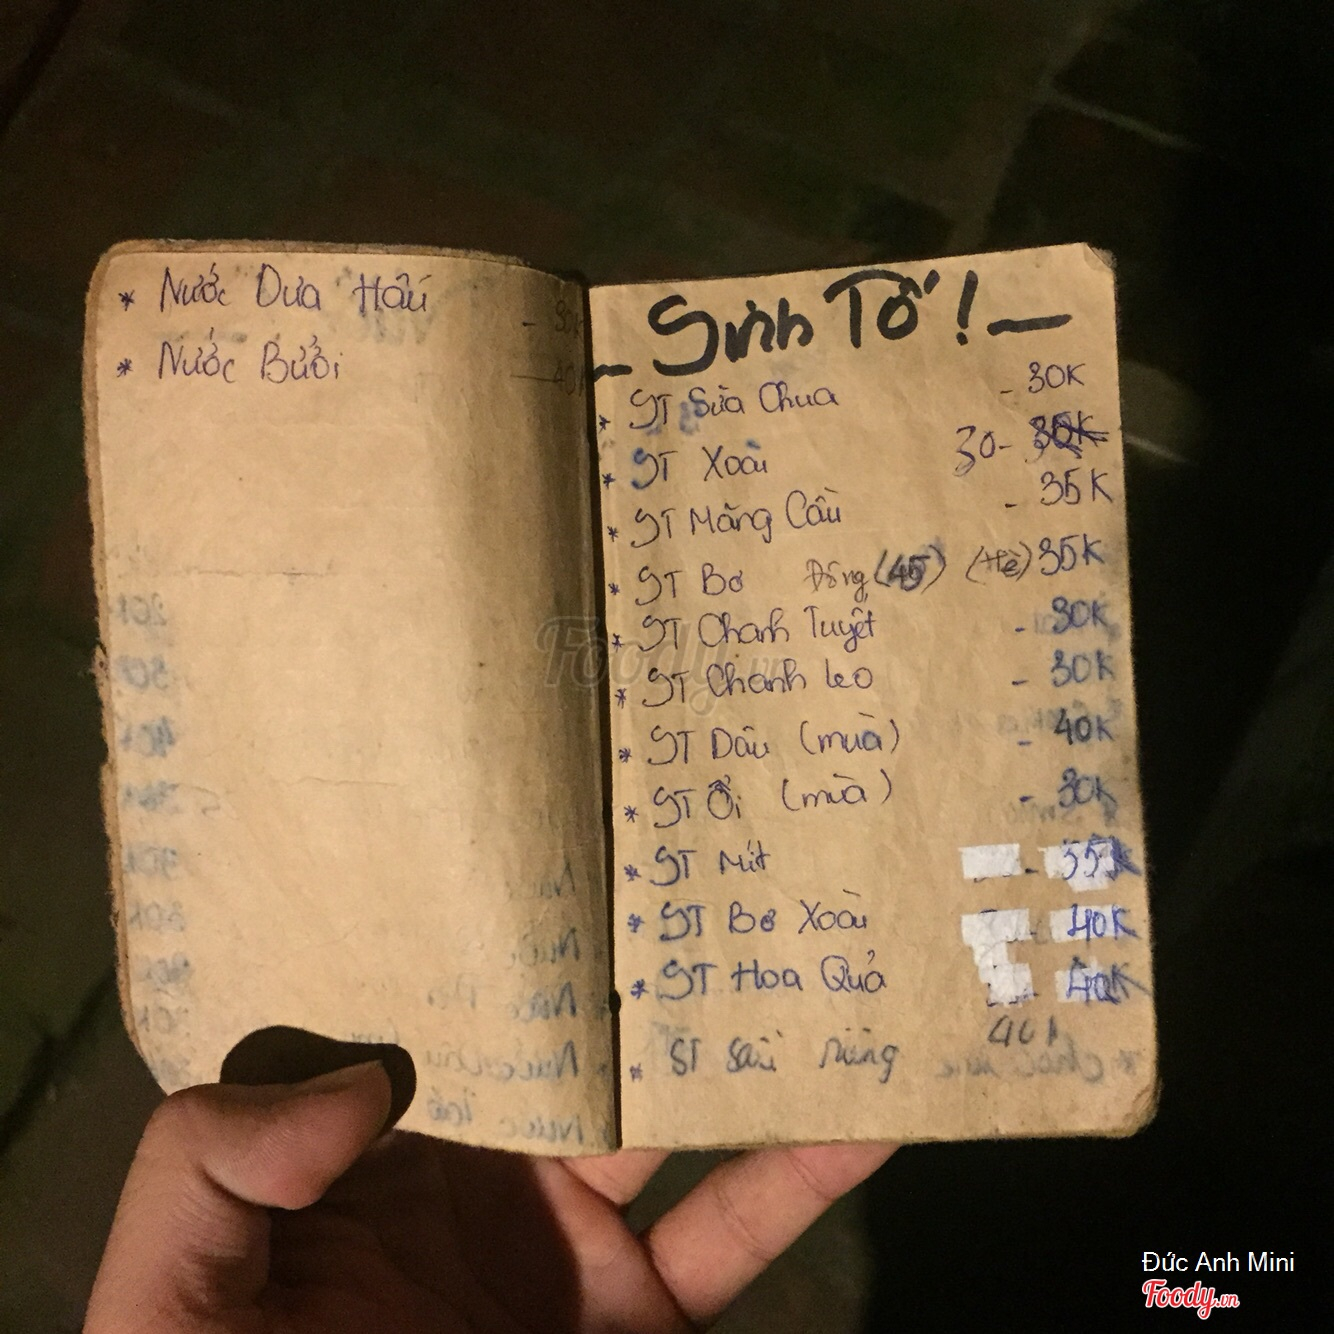 * Nước Dưa Hấu - 30K
* Nước Bưởi — 40K
- Sinh Tố! -
* ST Sữa Chua - 30K
* ST Xoài 30-
* ST Mãng Cầu - 35K
* ST Bơ Đông (45) (Hè) 35K
* ST Chanh Tuyết - 30K
* ST Chanh leo - 30K
* ST Dâu (mùa) - 40K
* ST Ổi (mùa) - 30K
* ST Mít - 35K
* ST Bơ Xoài 40K
* ST Hoa Quả - 40K
* ST Sầu riêng 40K
Foody.vn
Đức Anh Mini
Foody.vn